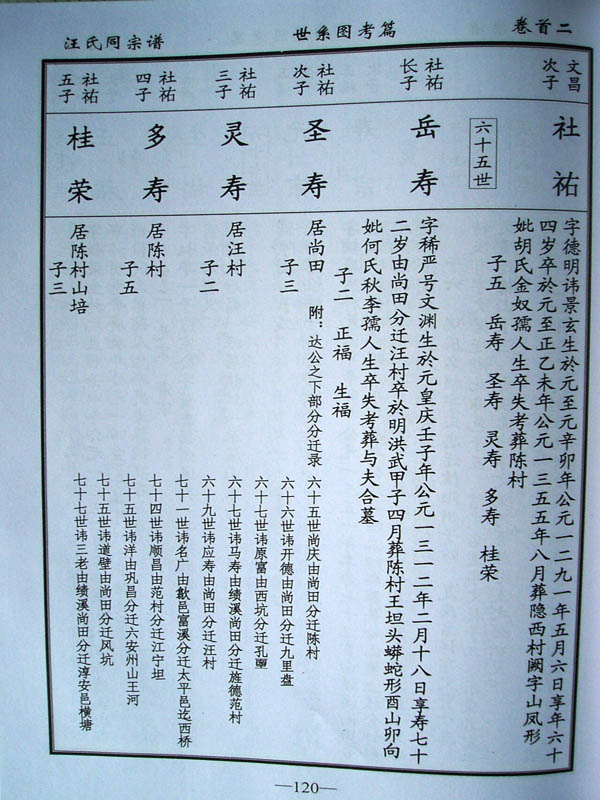 卷首二
世系图考篇
汪氏同宗谱
文昌
次子
社祐
字德明讳景玄生於元至元辛卯年公元一二九一年五月六日享年六十
四岁卒於元至正乙未年公元一三五五年八月葬隐西村阙字山凤形
妣胡氏金奴孺人生卒失考葬陈村
子五 岳寿 圣寿 灵寿 多寿 桂荣
六十五世
社祐
长子
岳寿
字稀严号文渊生於元皇庆壬子年公元一三一二年二月十八日享寿七十
二岁由尚田分迁汪村卒於明洪武甲子四月葬陈村王坦头蟒蛇形酉山卯向
妣何氏秋李孺人生卒失考葬与夫合墓
子二 正福 生福
社祐
次子
圣寿
居尚田
子三
社祐
三子
灵寿
居汪村
子二
社祐
四子
多寿
居陈村
子五
社祐
五子
桂荣
居陈村山培
子三
附：达公之下部分分迁录
六十五世尚庆由尚田分迁陈村
六十六世讳开德由尚田分迁九里盘
六十七世讳原富由西坑分迁孔壐
六十七世讳马寿由绩溪尚田分迁旌德范村
六十九世讳应寿由尚田分迁汪村
七十一世讳名广由歙邑富溪分迁太平邑迄西桥
七十四世讳顺昌由范村分迁江宁坦
七十五世讳洋由巩昌分迁六安州山王河
七十五世讳道壁由尚田分迁风坑
七十七世讳三老由绩溪尚田分迁淳安邑横塘
—120—